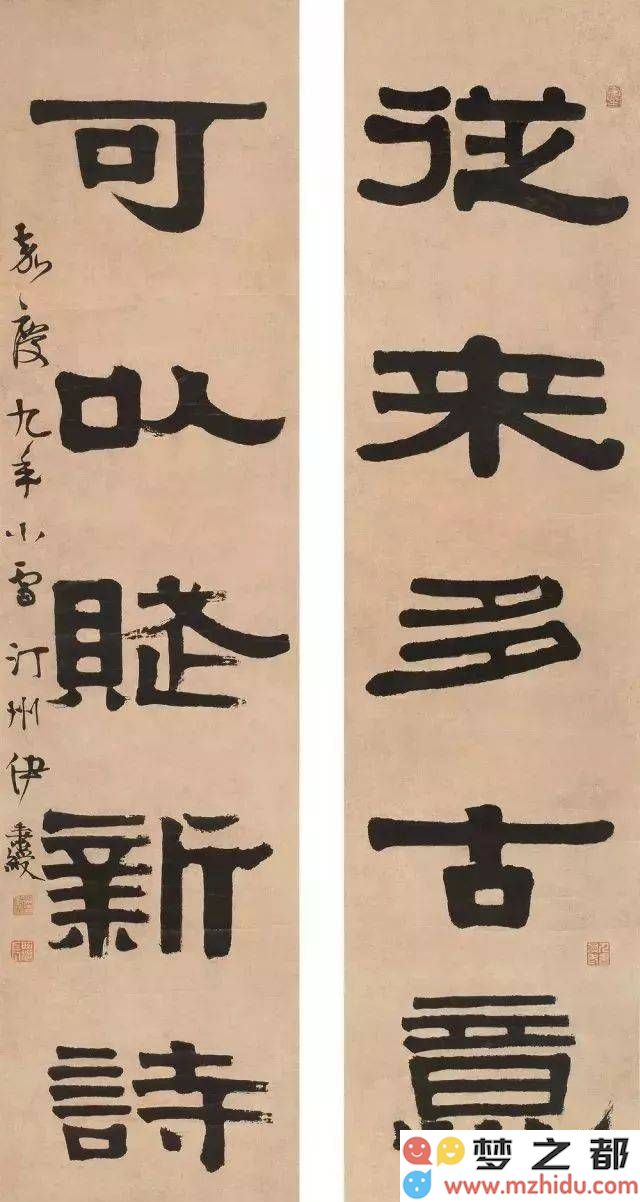 從来多古意
可以賦新詩
嘉慶九年小雪汀州伊秉綬
梦之都
www.mzhidu.com